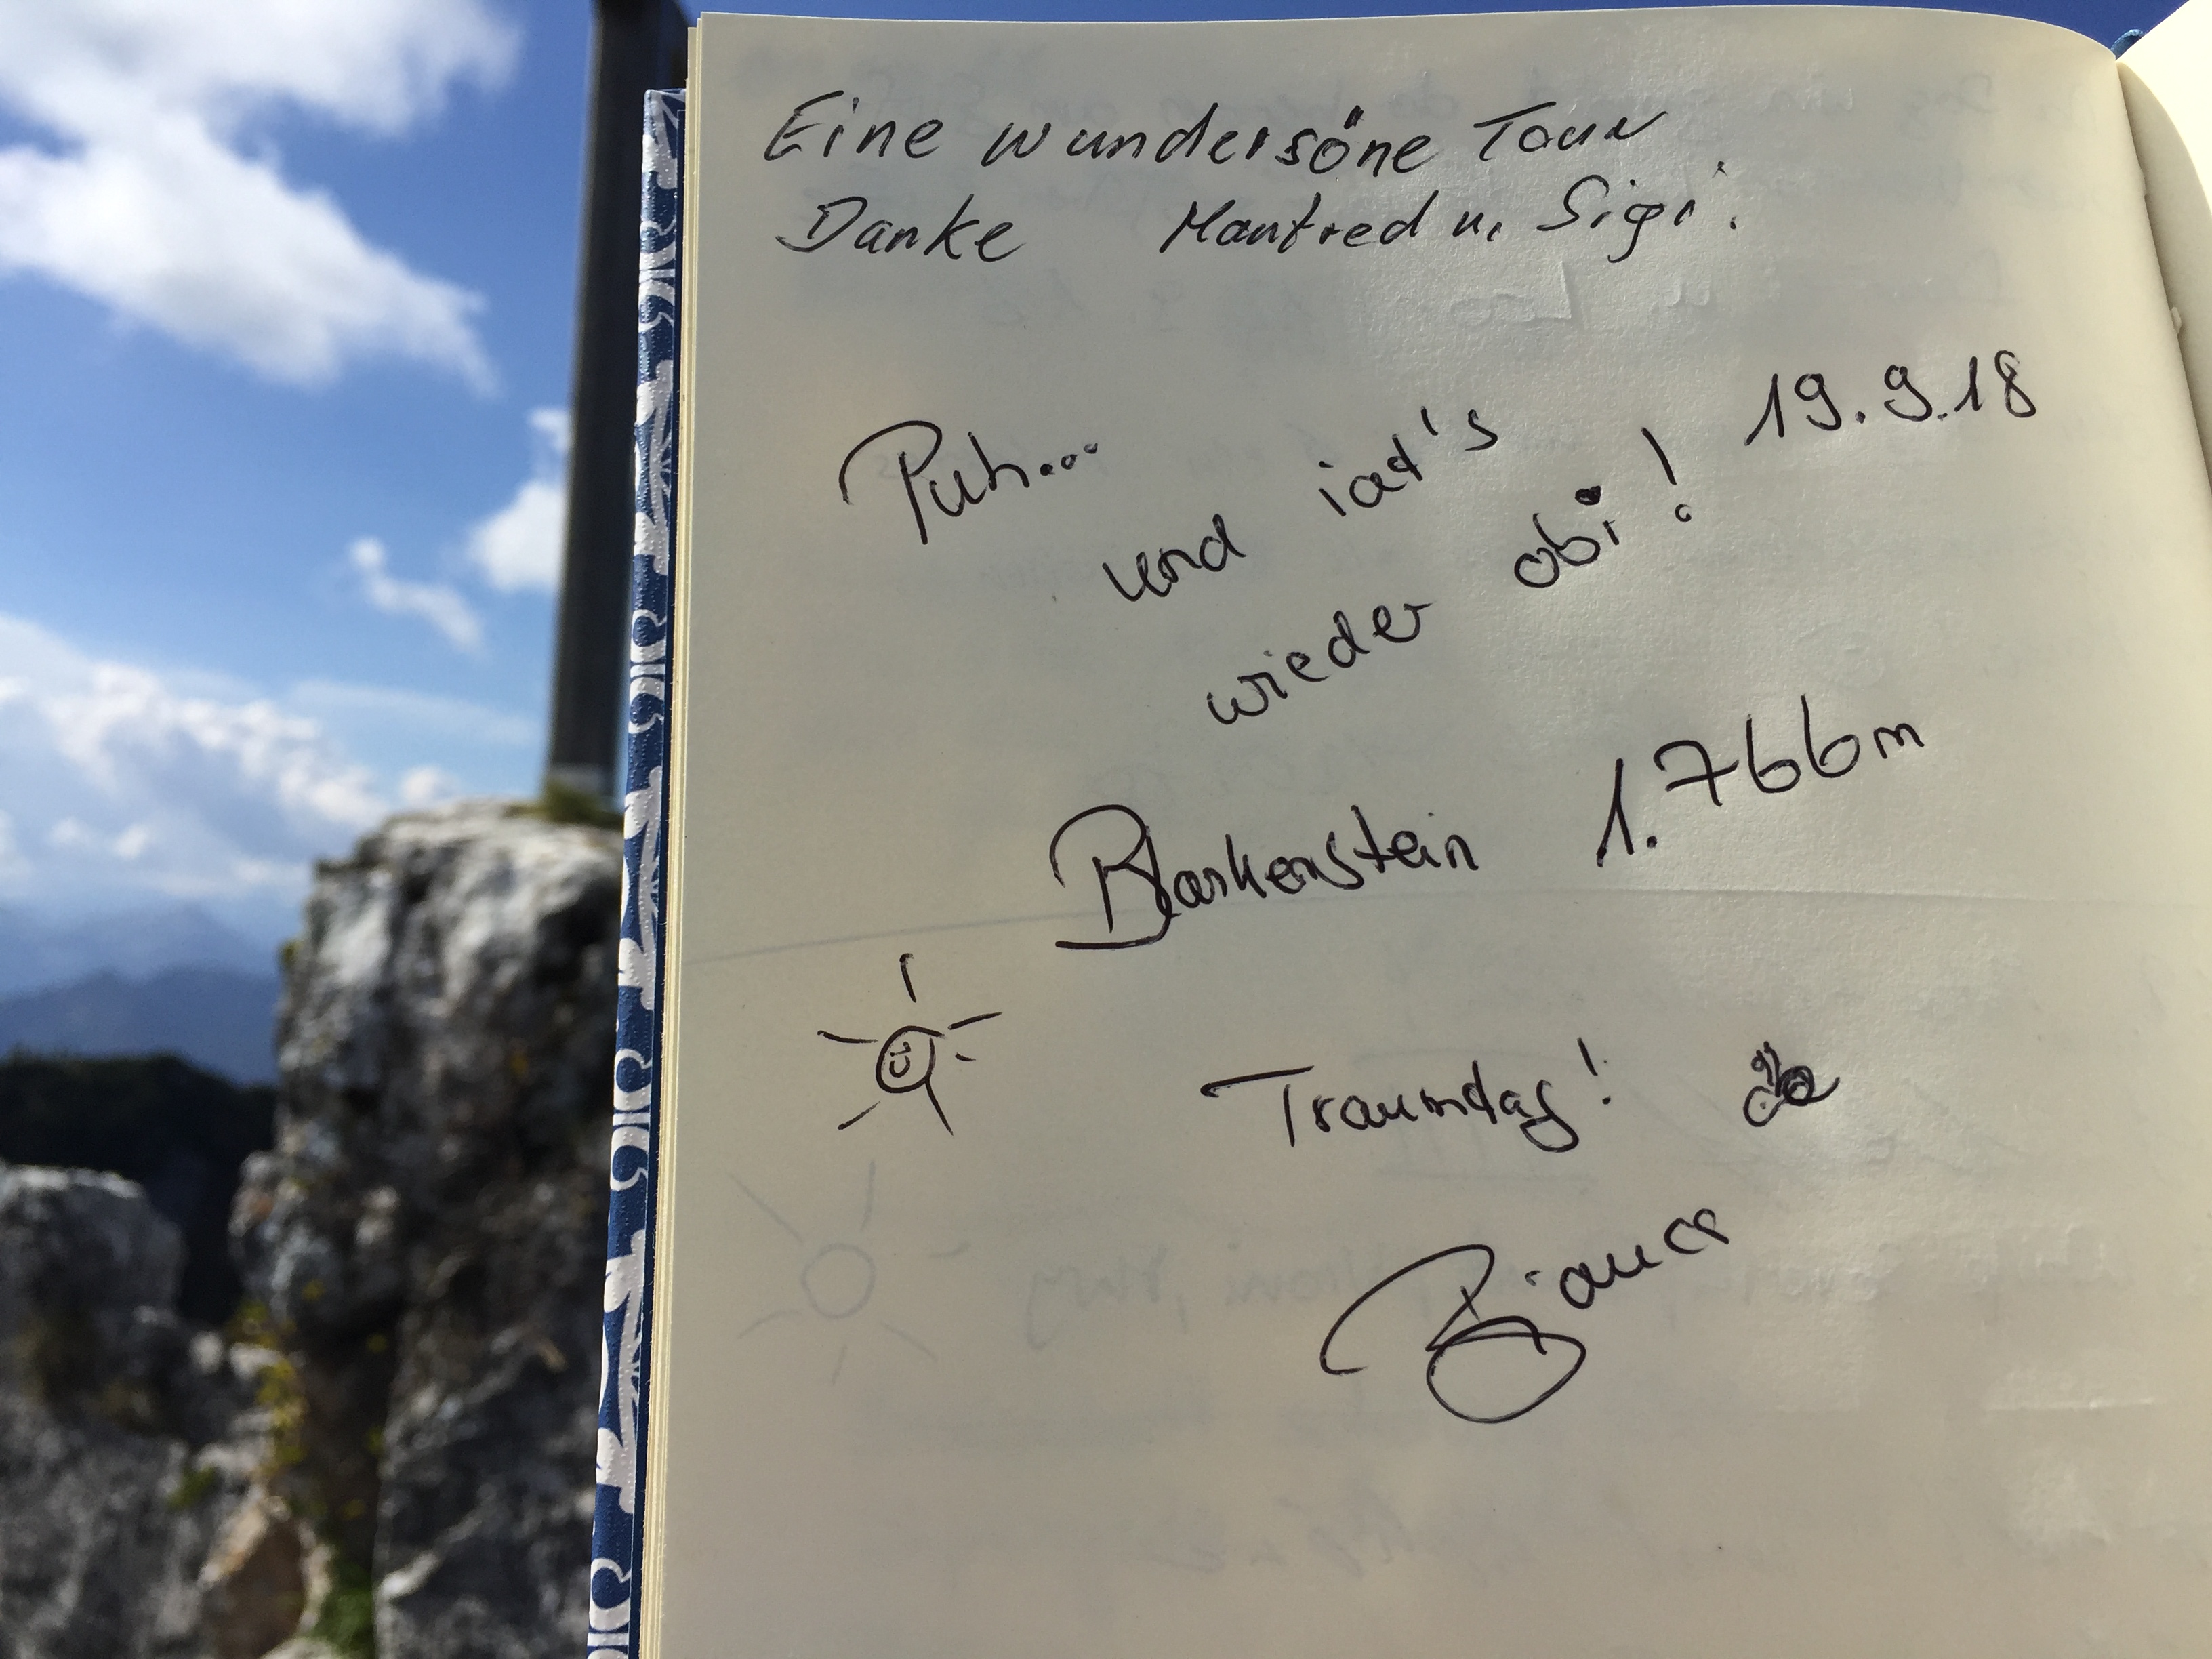 Eine wundersöne Tour
Danke Manfred u. Sigi.
Puh... 19.9.18
und iat's
wieder obi!
Blankenstein 1.766m
Traumtag!
Bianca